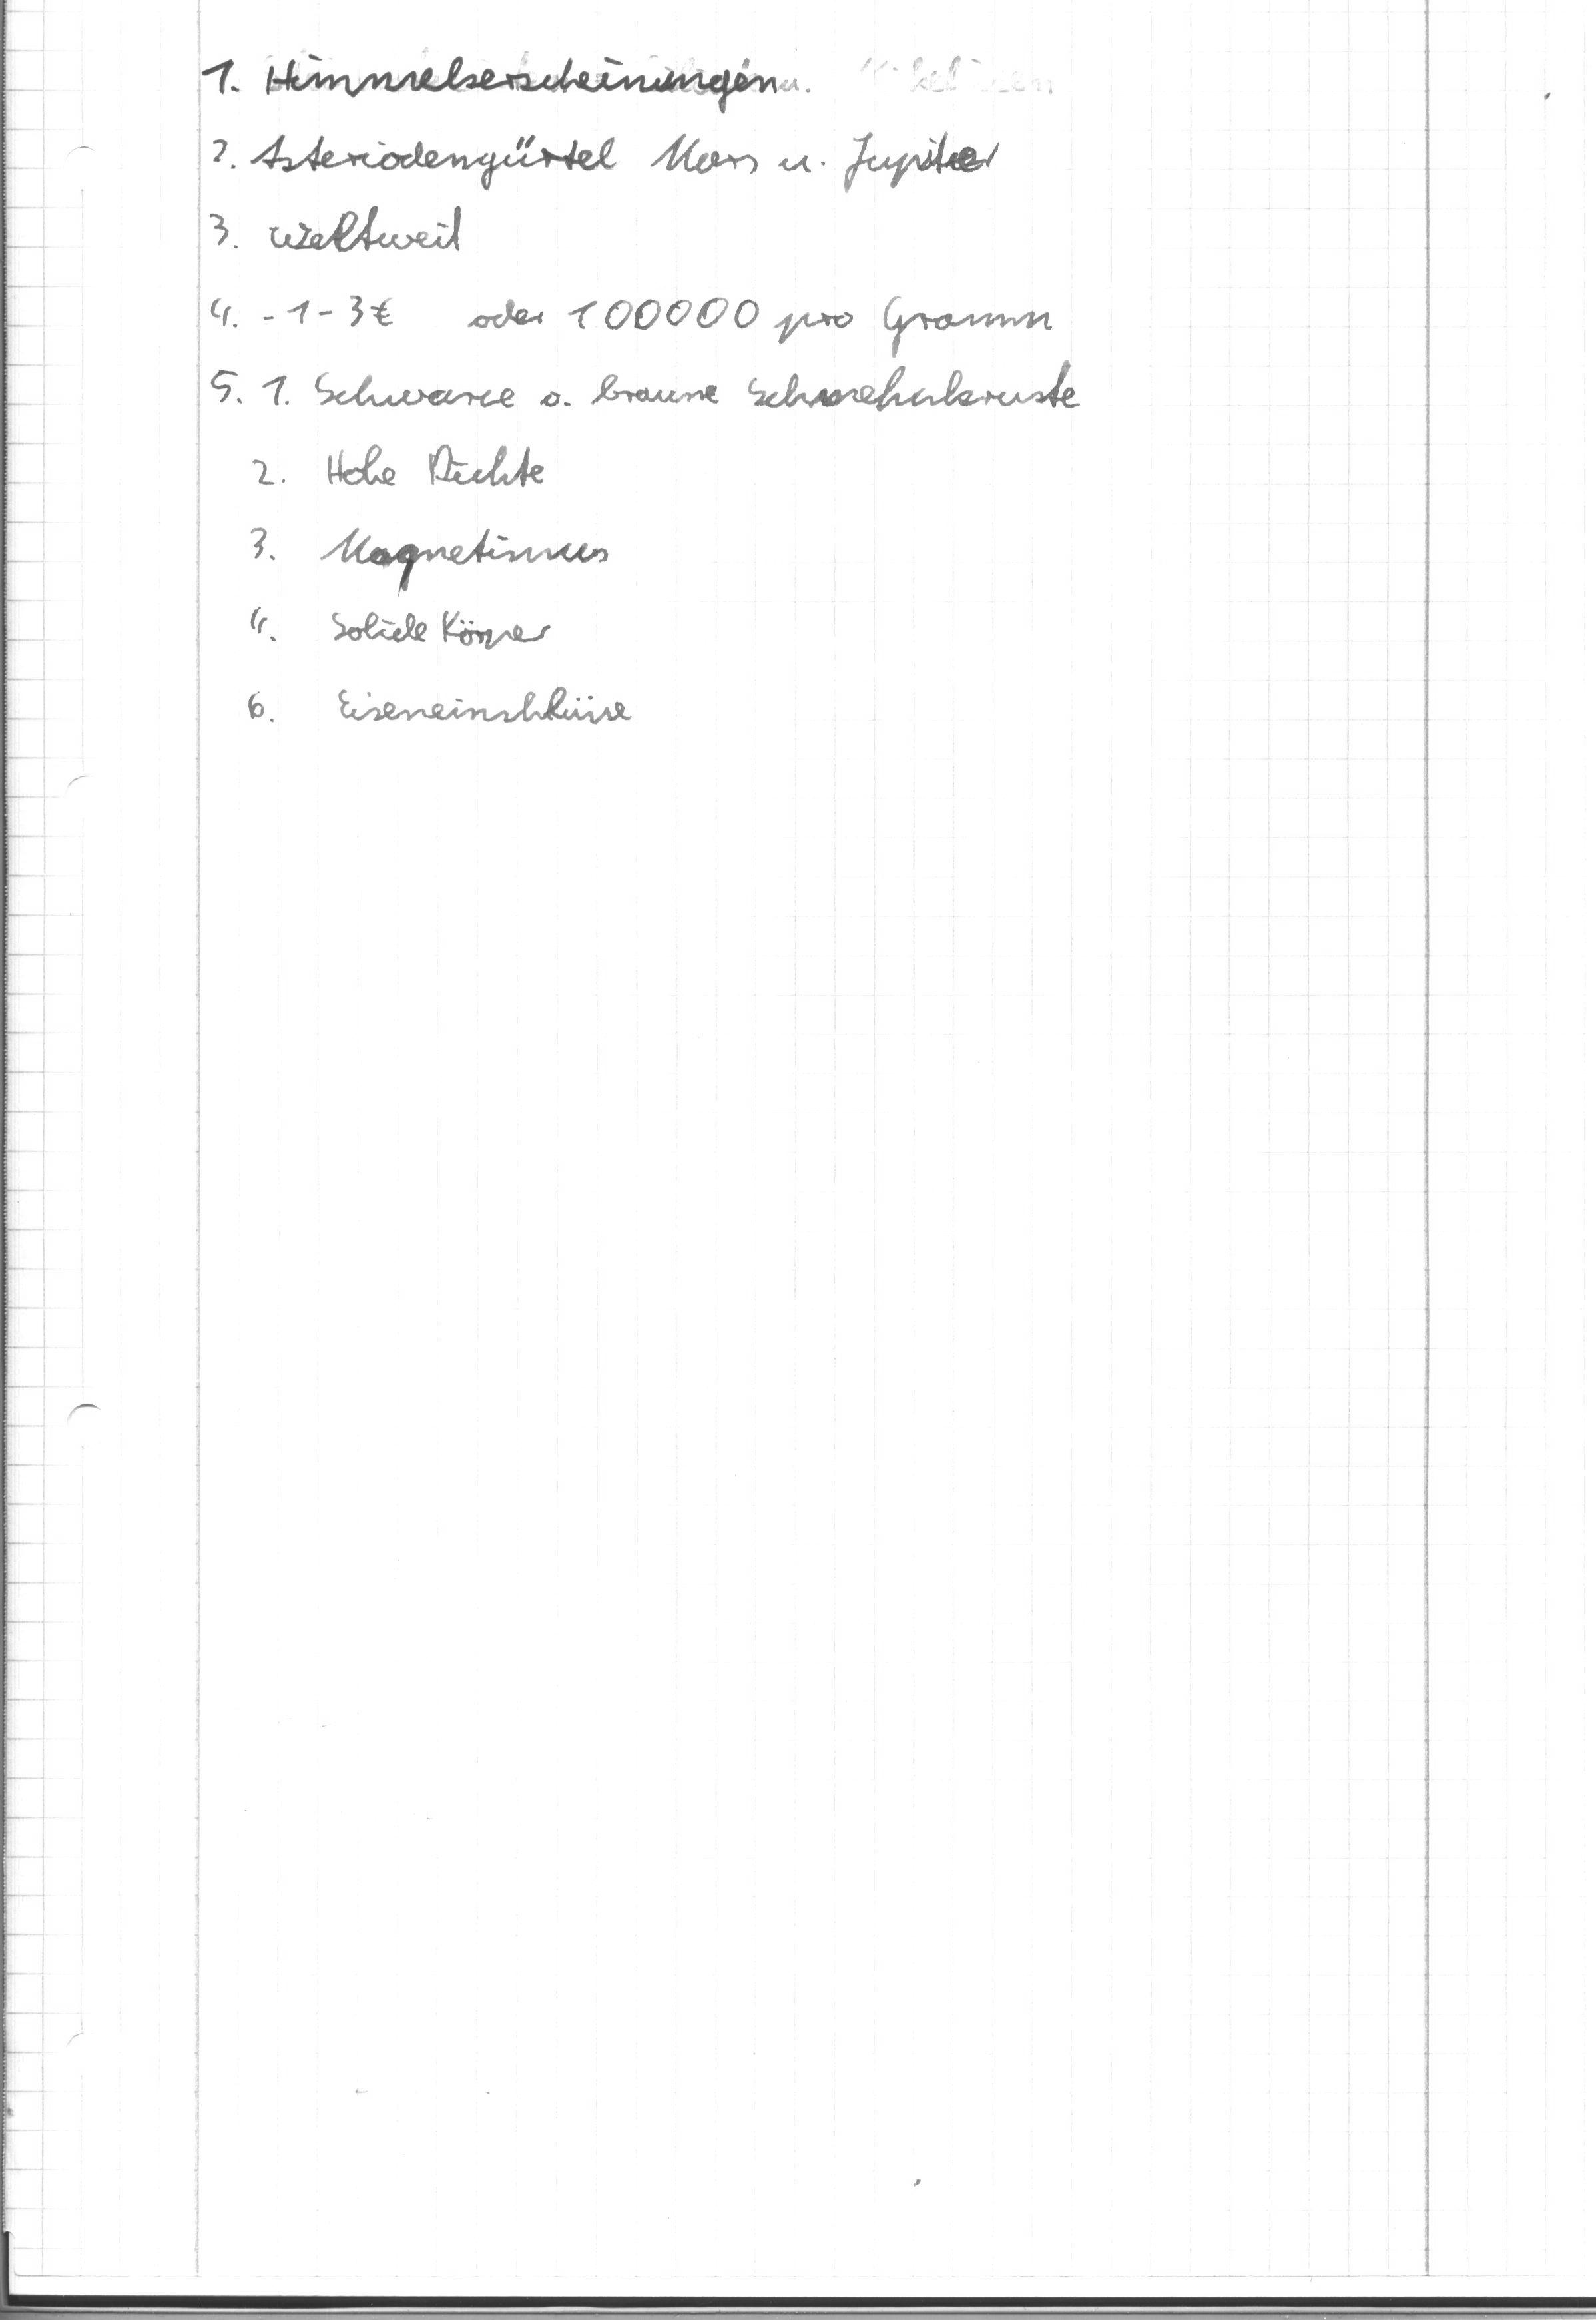 1. Himmelserscheinungen
2. Asteriodengürtel Mars u. Jupiter
3. weltweit
4. - 1 - 3 € oder 100000 pro Gramm
5. 1. Schwarze o. braune Schmelzkruste
2. Hohe Dichte
3. Magnetismus
4. Solide Körper
6. Eiseneinschlüsse